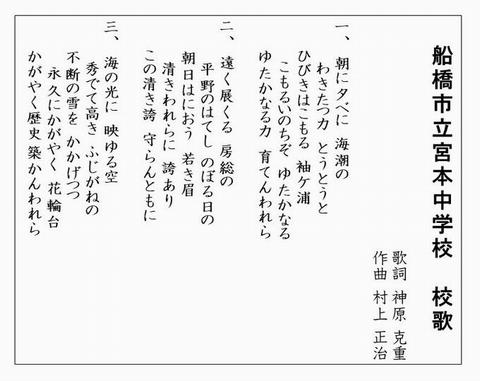 船橋市立宮本中学校　校歌
歌詞 神原 克重
作曲 村上 正治
一、朝に夕べに 海潮の
わきたつ力 とうとうと
ひびきはこもる 袖ケ浦
こもるいのちぞ ゆたかなる
ゆたかなる力 育てんわれら
二、遠く展くる 房総の
平野のはてし のぼる日の
朝日はにおう 若き眉
清きわれらに 誇あり
この清き誇 守らんともに
三、海の光に 映ゆる空
秀でて高き ふじがねの
不断の雪を かかげつつ
永久にかがやく 花輪台
かがやく歴史 築かんわれら